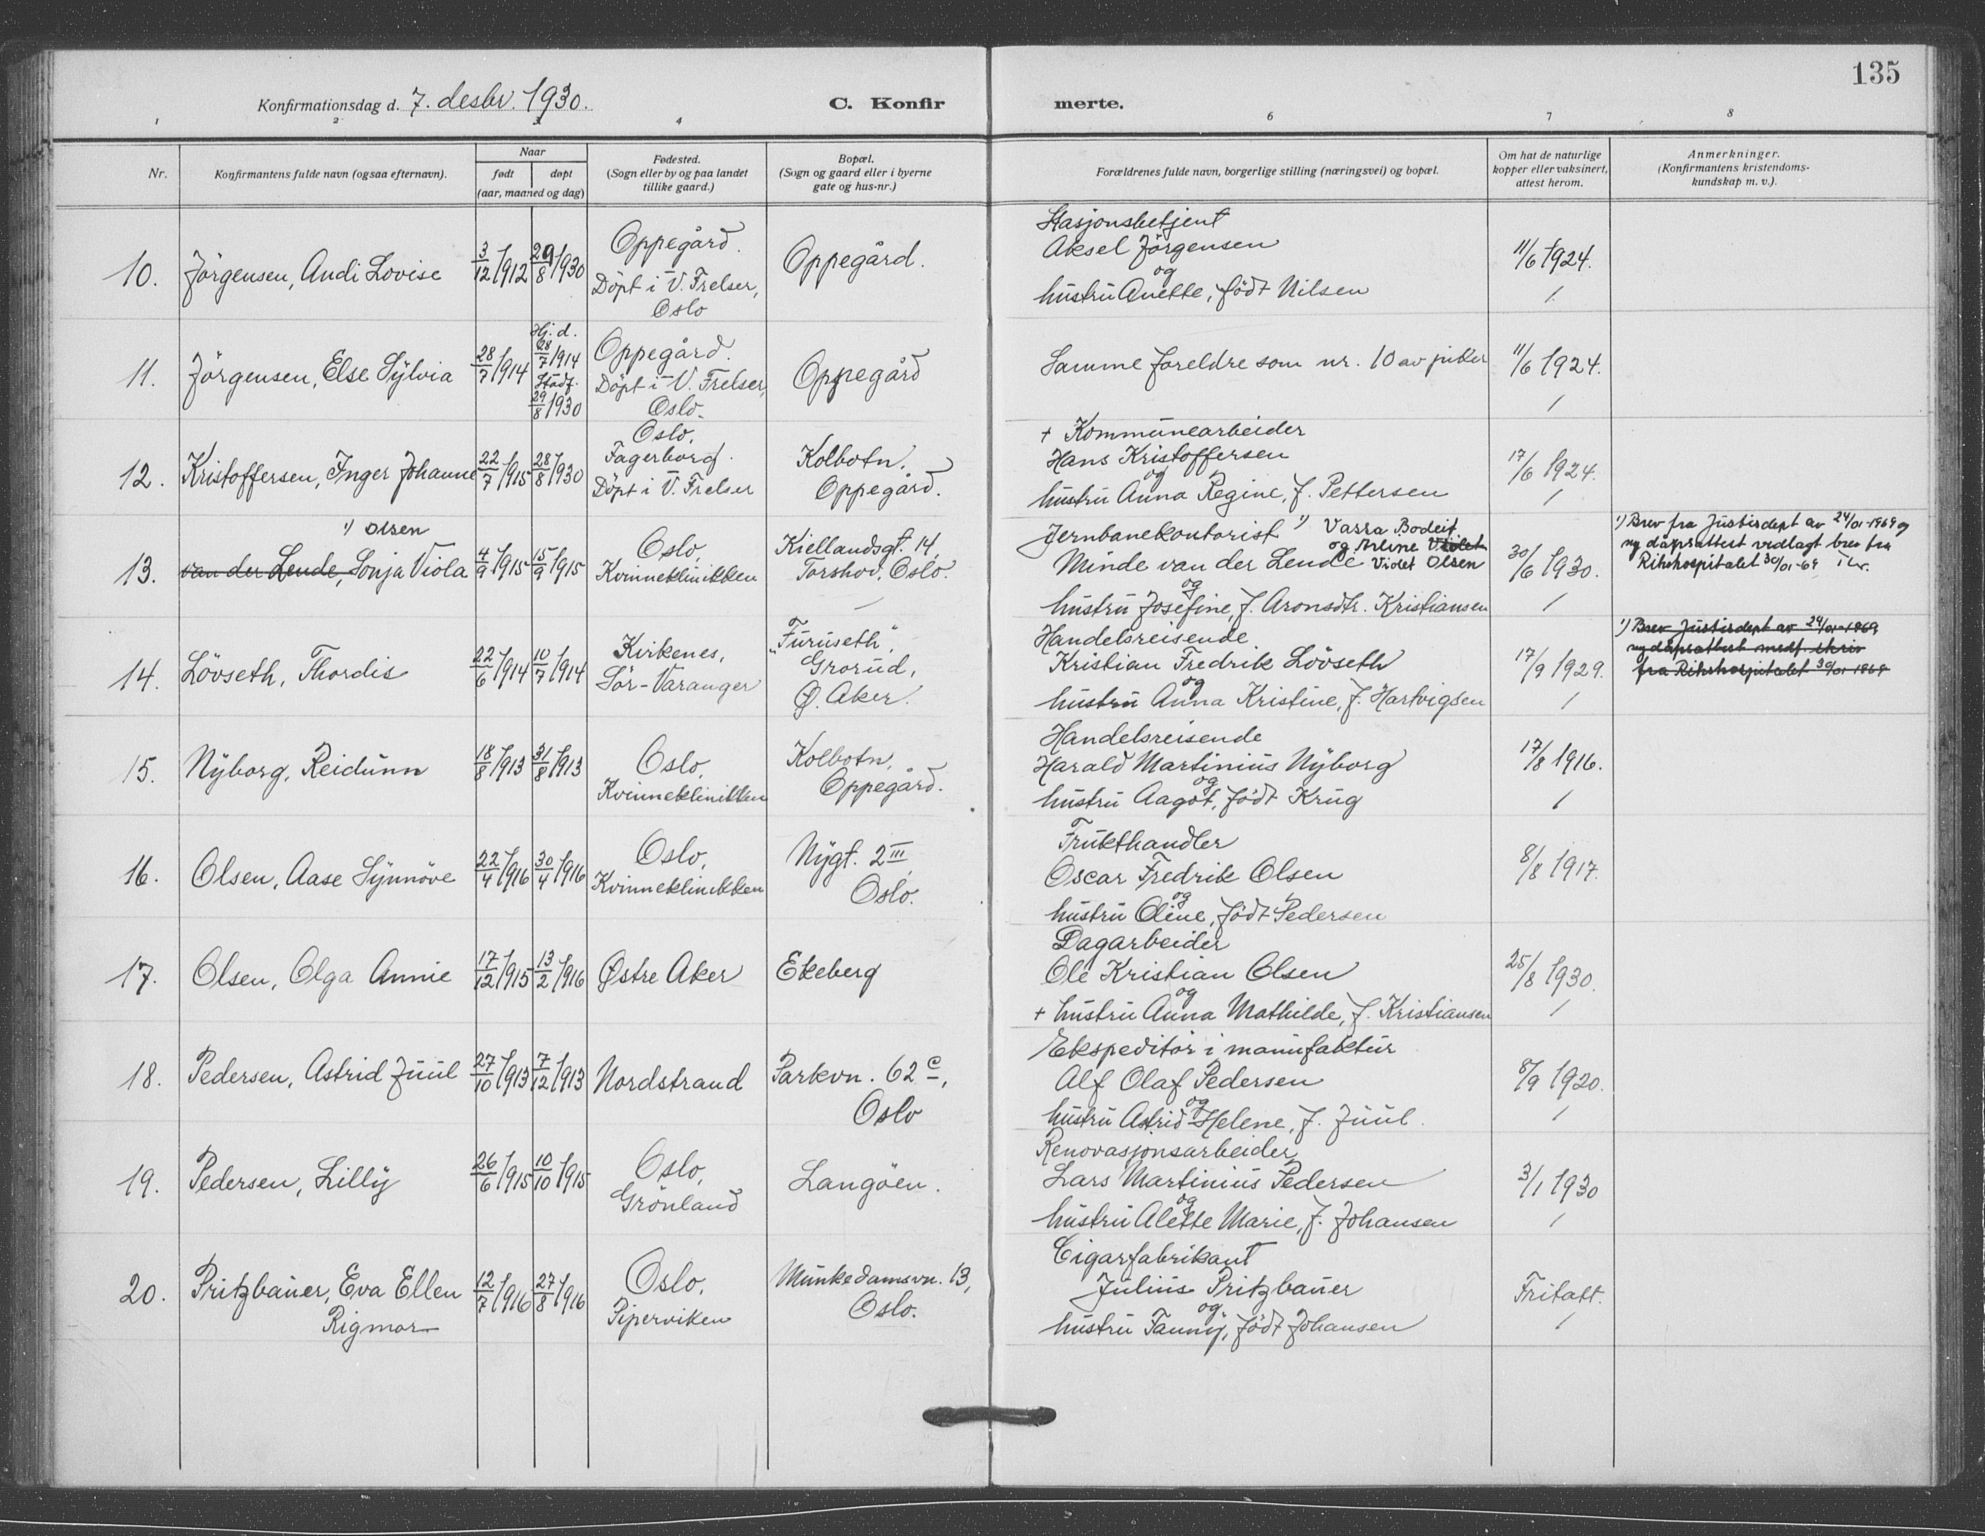 135
Konfirmationsdag d. 7. desbr. 1930.
C. Konfir merte.
1 2 3 4 6 7 8
Nr.
Konfirmantens fulde navn (ogsaa efternavn).
Naar
født døpt
(aar, maaned og dag)
Fødested.
(Sogn eller by og paa landet
tillike gaard.)
Bopæl.
(Sogn og gaard eller i byerne
gate og hus-nr.)
Forældrenes fulde navn, borgerlige stilling (næringsvei) og bopæl.
Om hat de naturlige
kopper eller vaksinert,
attest herom.
Anmerkninger.
(Konfirmantens kristendoms-
kundskap m. v.).
10.
Jörgensen, Andi Lovise
3/12 1912
29/8 1930
Oppegård.
Döpt i V. Frelser,
Oslo
Oppegård.
Stasjonsbetjent
Aksel Jörgensen
og
hustru Anette, födt Nilsen
11/6 1924.
/
11.
Jörgensen, Else Sylvia
28/7 1914
Hj. d.
28/7 1914
Stadf.
29/8 1930
Oppegård.
Döpt i V. Frelser,
Oslo.
Oppegård
Samme foreldre som nr. 10 av piker
11/6 1924.
/
12.
Kristoffersen, Inger Johanne
22/7 1915
28/8 1930
Oslo,
Fagerborg.
Döpt i V. Frelser
Kolbotn.
Oppegård.
+ Kommunearbeider
Hans Kristoffersen
og
hustru Anna Regine, f. Pettersen
17/6 1924.
/
13.
1) Olsen
van der Lende, Sonja Viola
4/9 1915
15/9 1915
Oslo,
Kvinneklinikken
Kiellandsgt. 14,
Torshov, Oslo.
Jernbanekontorist 1) Vassa Bodeit
og Arline Violet
Minde van der Lende Violet Olsen
og
hustru Josefine, f. Aronsdtr. Kristiansen
30/6 1930.
/
1) Brev fra Justisdept av 24/01-1969 og
ny dåpsattest vedlagt brev fra
Rikshospitalet 30/01-69
14.
Lövseth, Thordis
22/6 1914
10/7 1914
Kirkenes,
Sör-Varanger
"Furuseth",
Grorud,
Ø. Aker.
Handelsreisende
Kristian Fredrik Lövseth
og
hustru Anna Kristine, f. Hartvigsen
17/9 1929.
/
1) Brev Justisdept av 24/01-1969
ny dåpsattest medf. skriv
fra Rikshospitalet 30/01 1969
15.
Nyborg, Reidunn
18/8 1913
31/8 1913
Oslo,
Kvinneklinikken
Kolbotn,
Oppegård.
Handelsreisende
Harald Martinius Nyborg
og
hustru Aagot, födt Krug
17/8 1916.
/
16.
Olsen, Aase Synnöve
22/4 1916
30/4 1916
Oslo,
Kvinneklinikken
Nygt. 2 III,
Oslo.
Frukthandler
Oscar Fredrik Olsen
og
hustru Oline, födt Pedersen
8/8 1917.
17.
Olsen, Olga Annie
17/12 1915
13/2 1916
Østre Aker
Ekeberg
Dagarbeider
Ole Kristian Olsen
og
+ hustru Anna Mathilde, f. Kristiansen
25/8 1930.
/
18.
Pedersen, Astrid Juul
27/10 1913
7/12 1913
Nordstrand
Parkvn. 62 c,
Oslo
Ekspeditör i manufaktur
Alf Olaf Pedersen
og
hustru Astrid Helene, f. Juul.
8/9 1920.
/
19.
Pedersen, Lilly
26/6 1915
10/10 1915
Oslo,
Grönland
Langöen.
Renovasjonsarbeider
Lars Martinius Pedersen
og
hustru Alette Marie, f. Johansen
3/1 1930
/
20.
Pritzbauer, Eva Ellen
Rigmor
12/7 1916
27/8 1916
Oslo.
Piperviken
Munkedamsvn. 13,
Oslo.
Cigarfabrikant
Julius Pritzbauer
og
hustru Fanny, födt Johansen
Fritatt.
/